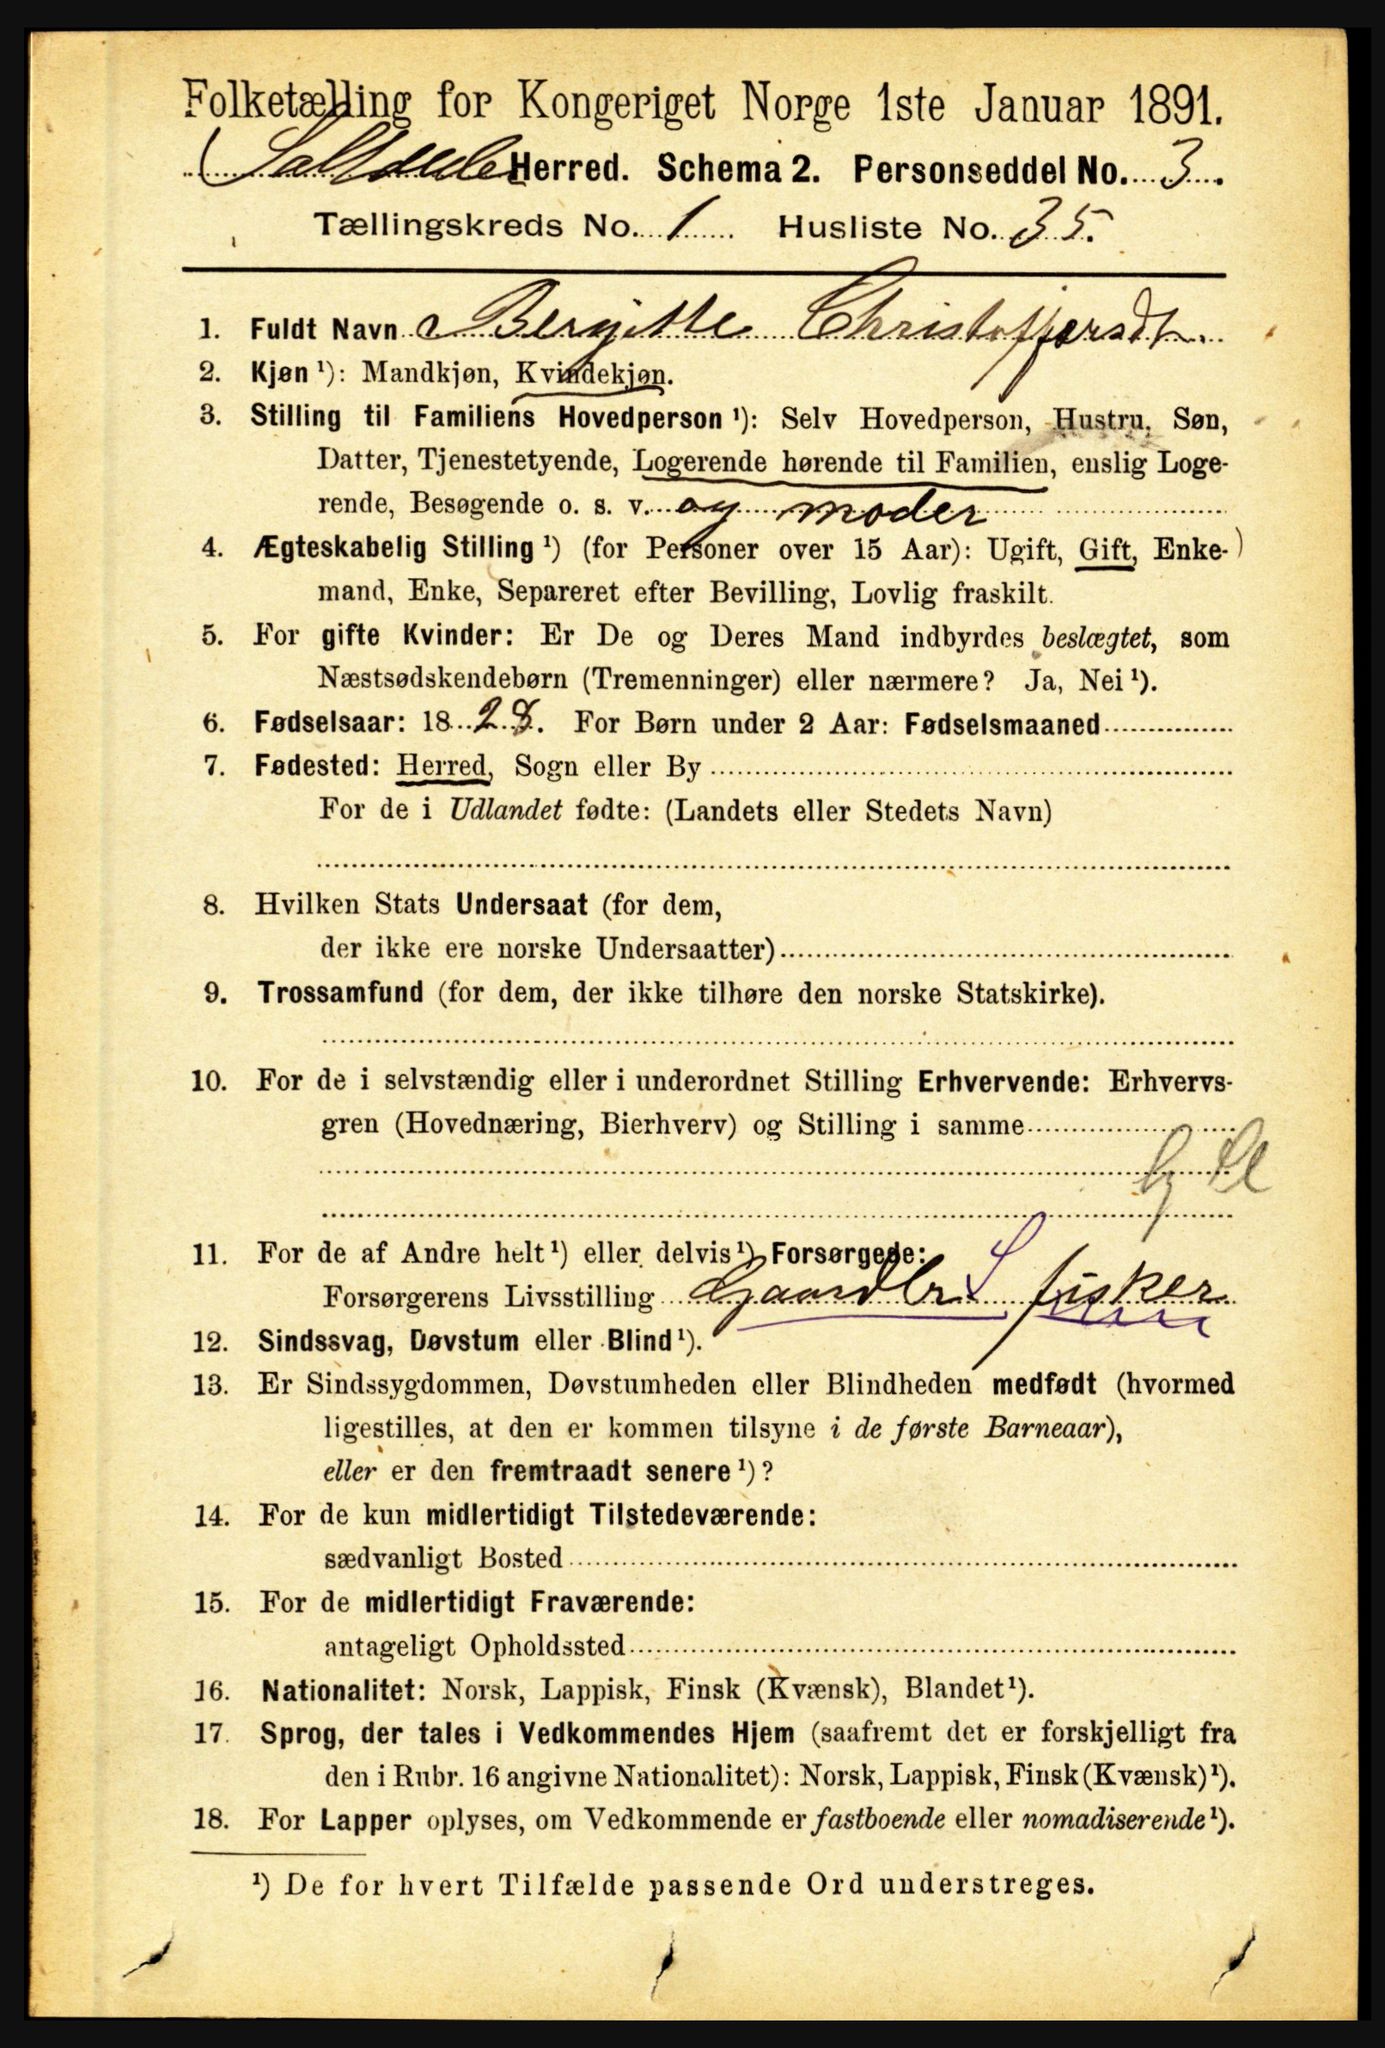 Folketælling for Kongeriget Norge 1ste Januar 1891.
Saltdalen Herred. Schema 2. Personseddel No. 3.
Tællingskreds No. 1 Husliste No. 35.
1. Fuldt Navn Bergitte Christoffersdt.
2. Kjøn ¹): Mandkjøn, Kvindekjøn.
3. Stilling til Familiens Hovedperson ¹): Selv Hovedperson, Hustru, Søn,
Datter, Tjenestetyende, Logerende hørende til Familien, enslig Loge-
rende, Besøgende o. s. v. og moder
4. Ægteskabelig Stilling ¹) (for Personer over 15 Aar): Ugift, Gift, Enke-
mand, Enke, Separeret efter Bevilling, Lovlig fraskilt.
5. For gifte Kvinder: Er De og Deres Mand indbyrdes beslægtet, som
Næstsødskendebørn (Tremenninger) eller nærmere? Ja, Nei ¹).
6. Fødselsaar: 1828. For Børn under 2 Aar: Fødselsmaaned
7. Fødested: Herred, Sogn eller By
For de i Udlandet fødte: (Landets eller Stedets Navn)
8. Hvilken Stats Undersaat (for dem,
der ikke ere norske Undersaatter)
9. Trossamfund (for dem, der ikke tilhøre den norske Statskirke).
10. For de i selvstændig eller i underordnet Stilling Erhvervende: Erhvervs-
gren (Hovednæring, Bierhverv) og Stilling i samme
11. For de af Andre helt ¹) eller delvis ¹) Forsørgede:
Forsørgerens Livsstilling Gaardbr fisker
12. Sindssvag, Døvstum eller Blind ¹).
13. Er Sindssygdommen, Døvstumheden eller Blindheden medfødt (hvormed
ligestilles, at den er kommen tilsyne i de første Barneaar),
eller er den fremtraadt senere ¹)?
14. For de kun midlertidigt Tilstedeværende:
sædvanligt Bosted
15. For de midlertidigt Fraværende:
antageligt Opholdssted
16. Nationalitet: Norsk, Lappisk, Finsk (Kvænsk), Blandet ¹).
17. Sprog, der tales i Vedkommendes Hjem (saafremt det er forskjelligt fra
den i Rubr. 16 angivne Nationalitet): Norsk, Lappisk, Finsk (Kvænsk) ¹).
18. For Lapper oplyses, om Vedkommende er fastboende eller nomadiserende ¹).
¹) De for hvert Tilfælde passende Ord understreges.